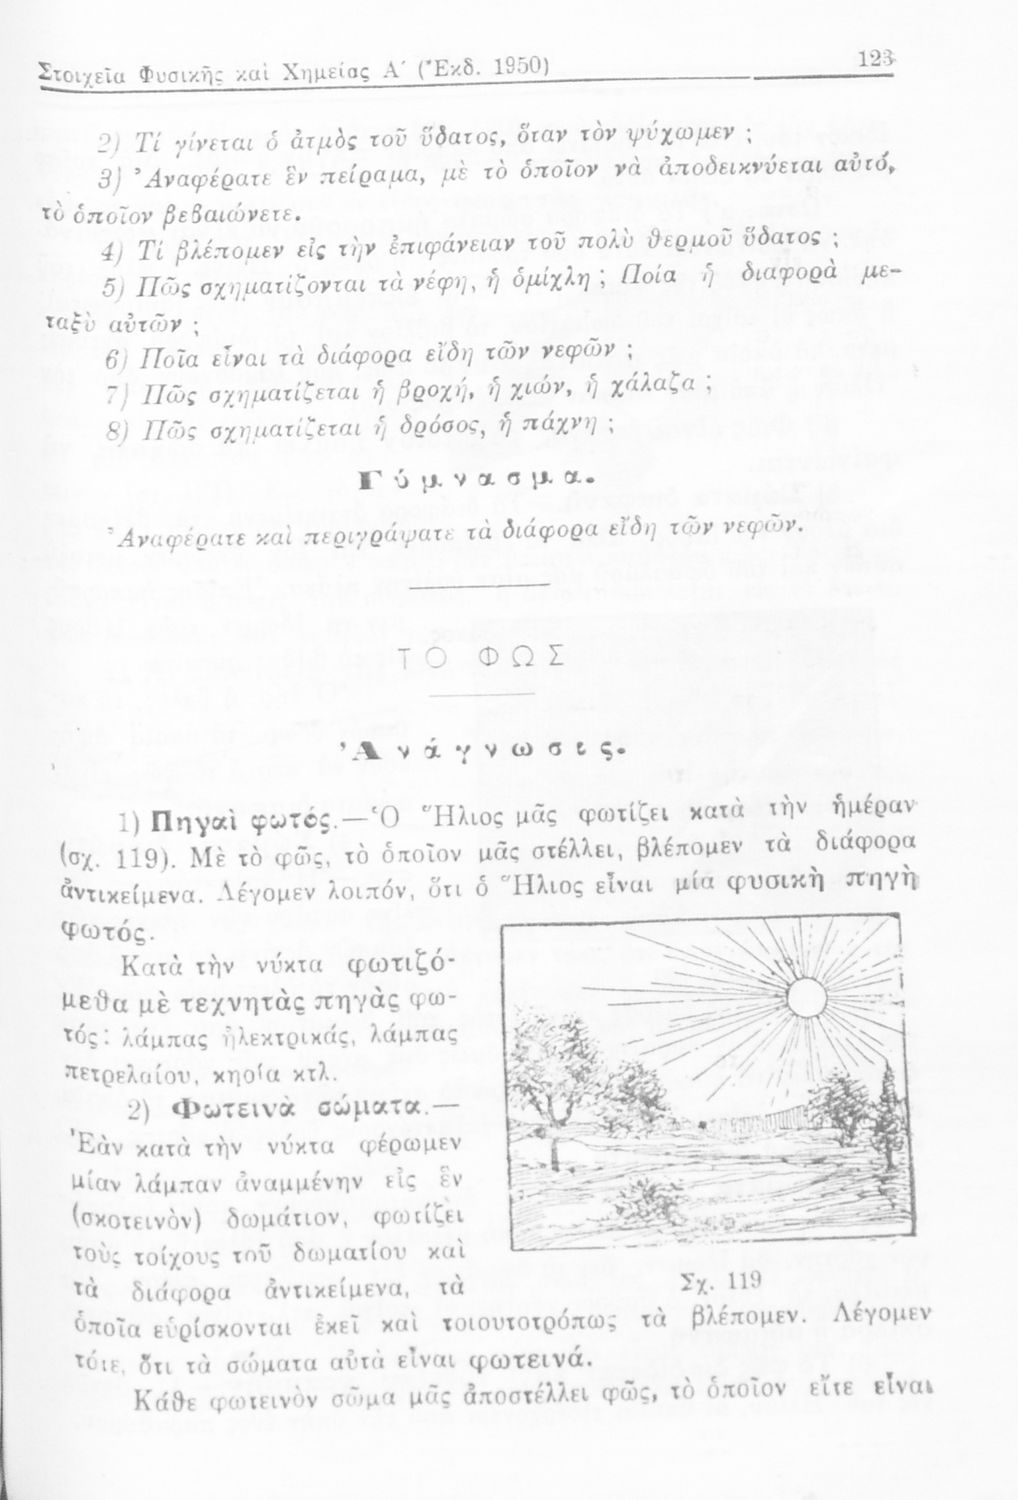 Στοιχεῖα Φυσικῆς καὶ Χημείας Α΄ (Ἔκδ. 1950)
123
2) Τί γίνεται ὁ ἀτμὸς τοῦ ὕδατος, ὅταν τὸν ψύχωμεν ;
3) Ἀναφέρατε ἓν πείραμα, μὲ τὸ ὁποῖον νὰ ἀποδεικνύεται αὐτό,
τὸ ὁποῖον βεβαιώνετε.
4) Τί βλέπομεν εἰς τὴν ἐπιφάνειαν τοῦ πολὺ θερμοῦ ὕδατος ;
5) Πῶς σχηματίζονται τὰ νέφη, ἡ ὁμίχλη ; Ποία ἡ διαφορὰ με-
ταξὺ αὐτῶν ;
6) Ποῖα εἶναι τὰ διάφορα εἴδη τῶν νεφῶν ;
7) Πῶς σχηματίζεται ἡ βροχή, ἡ χιών, ἡ χάλαζα ;
8) Πῶς σχηματίζεται ἡ δρόσος, ἡ πάχνη ;
Γύμνασμα.
Ἀναφέρατε καὶ περιγράψατε τὰ διάφορα εἴδη τῶν νεφῶν.
ΤΟ ΦΩΣ
Ἀνάγνωσις.
1) Πηγαὶ φωτός.—Ὁ Ἥλιος μᾶς φωτίζει κατὰ τὴν ἡμέραν
(σχ. 119). Μὲ τὸ φῶς, τὸ ὁποῖον μᾶς στέλλει, βλέπομεν τὰ διάφορα
ἀντικείμενα. Λέγομεν λοιπόν, ὅτι ὁ Ἥλιος εἶναι μία φυσικὴ πηγὴ
φωτός.
Κατὰ τὴν νύκτα φωτιζό-
μεθα μὲ τεχνητὰς πηγὰς φω-
τός: λάμπας ἠλεκτρικάς, λάμπας
πετρελαίου, κηρία κτλ.
2) Φωτεινὰ σώματα.—
Ἐὰν κατὰ τὴν νύκτα φέρωμεν
μίαν λάμπαν ἀναμμένην εἰς ἓν
(σκοτεινὸν) δωμάτιον, φωτίζει
τοὺς τοίχους τοῦ δωματίου καὶ
τὰ διάφορα ἀντικείμενα, τὰ
Σχ. 119
ὁποῖα εὑρίσκονται ἐκεῖ καὶ τοιουτοτρόπως τὰ βλέπομεν. Λέγομεν
τότε, ὅτι τὰ σώματα αὐτὰ εἶναι φωτεινά.
Κάθε φωτεινὸν σῶμα μᾶς ἀποστέλλει φῶς, τὸ ὁποῖον εἴτε εἶναι